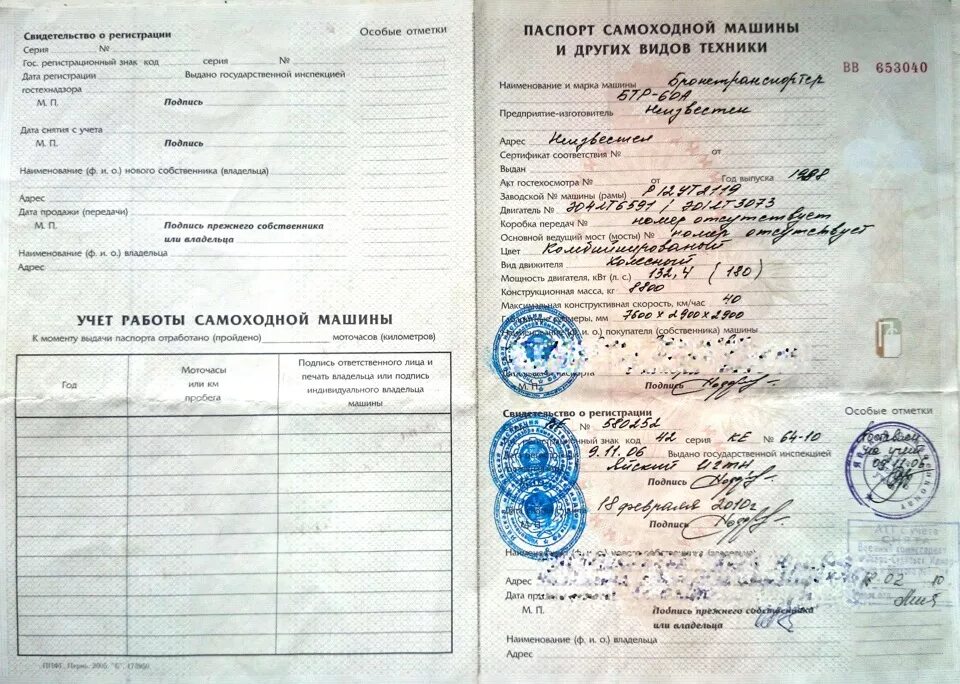 Свидетельство о регистрации
Особые отметки
Серия №
Гос. регистрационный знак код серия №
Дата регистрации Выдано государственной инспекцией
гостехнадзора
М. П. Подпись
Дата снятия с учета
М. П. Подпись
Наименование (ф. и о.) нового собственника (владельца)
Адрес
Дата продажи (передачи)
М. П. Подпись прежнего собственника
или владельца
Наименование (ф. и о.) владельца
Адрес
УЧЕТ РАБОТЫ САМОХОДНОЙ МАШИНЫ
К моменту выдачи паспорта отработано (пройдено) моточасов (километров)
Год
Моточасы
или км
пробега
Подпись ответственного лица и
печать владельца или подпись
индивидуального владельца
машины
ППФГ, Пермь, 2005, "Б",
ПАСПОРТ САМОХОДНОЙ МАШИНЫ
И ДРУГИХ ВИДОВ ТЕХНИКИ
ВВ 653040
Наименование и марка машины Бронетранспортер
БТР-60А
Предприятие-изготовитель Неизвестен
Адрес Неизвестен
Сертификат соответствия № от
Выдан
Акт гостехосмотра № от Год выпуска 1988
Заводской № машины (рамы) Р12УТ2119
Двигатель № Э042Т6591 / Э012Т3073
Коробка передач № номер отсутствует
Основной ведущий мост (мосты) № номер отсутствует
Цвет Комбинированый
Вид движителя колесный
Мощность двигателя, кВт (л. с.) 132,4 (180)
Конструкционная масса, кг 8800
Максимальная конструктивная скорость, км/час 40
мм 7600 x 2900 x 2900
(ф. и о.) покупателя (собственника) машины
паспорта
М. П. Подпись
Свидетельство о регистрации
Особые отметки
№ 580252
знак код 42 серия КЕ № 64-10
9.11.06 Выдано государственной инспекцией
Яйский ИГТН
Подпись
18 февраля 2010г
Подпись
Поставлен
на учет
09.11.06
нового собственника (владельца)
Адрес
02 10
М. П. Подпись прежнего собственника
или владельца
Наименование (ф. и о.) владельца
Адрес